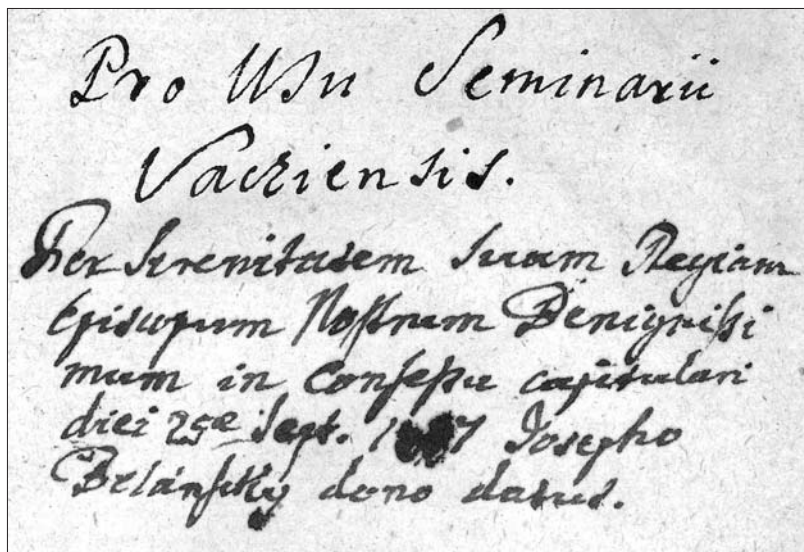 Pro Usu Seminarii
Vacziensis.
Per Serenitatem Suam Regiam
Episcopum Nostrum Benignissi
mum in Consessu capitulari
diei 25ae Sept. Josepho
Belánszky dono datus.